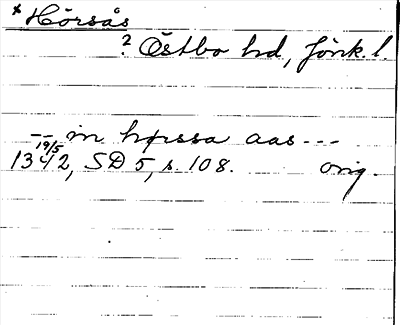 * Hörsås
? Östbo hd, Jönk. l.
-- in hørssa aas ---
19/5
1342, SD 5, s. 108. orig.